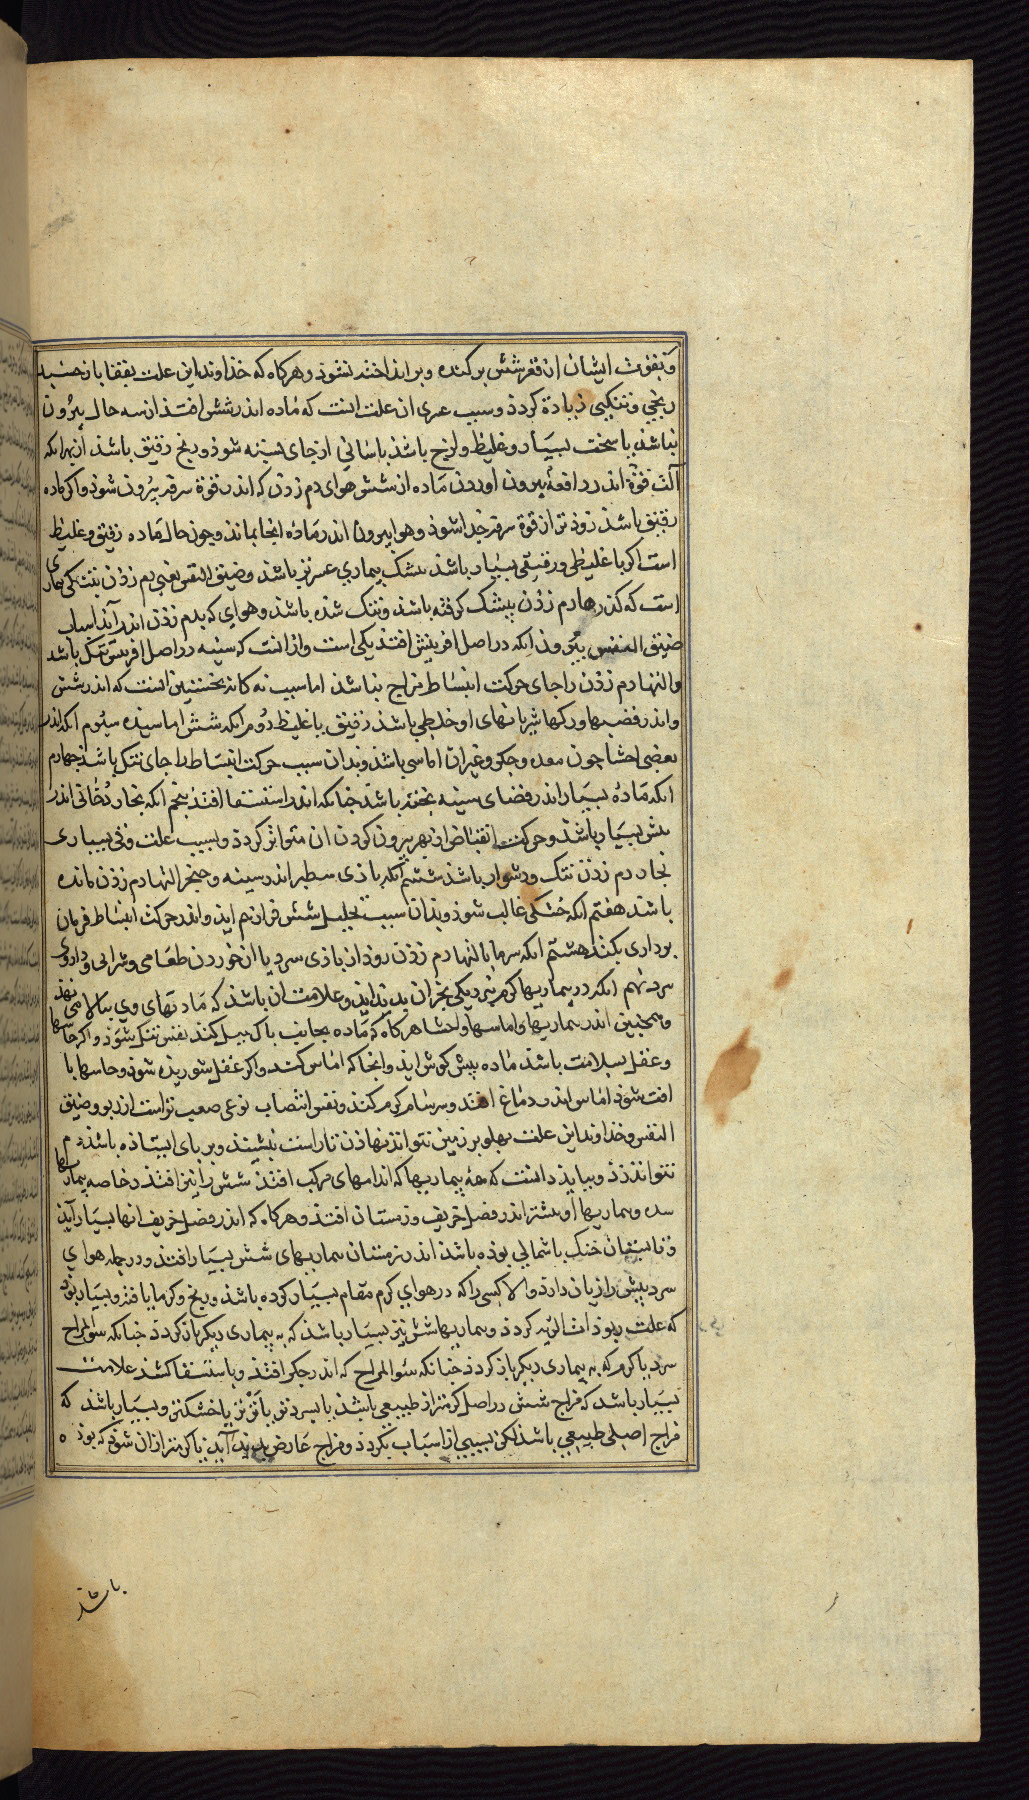 وبقوت ایشان از قعر شش برکنده و بر انداخته نشوذ و هرکاه که خذاوند این علت بقفا باز خسبذ
رنجی و تنکیی زیادة کردد و سبب عسری این علت انست که ماده اندر شش افتد از سه حال بیرون
نباشد یا سخت بسیار و غلیظ و لزج باشذ باسانی از جای شسته شوذ و ریح رقیق باشذ از بهر انکه
آلت قوة اندر دافعهٔ بیرون اوردن ماده از شش هوای دم زدن که اندر قوة سرفه بیرون شوذ و اکر ماده
رقیق باشذ زوذتر از قوة سرفه جذا شوذ و هوا بیرون اندر ماده انجا بماند و چون حال ماده رقیق و غلیظ
است اکر با غلیظی و رقیقی بسیار باشذ بیشک بیماری عسرتر باشذ و ضیق النفس یعنی دم زدن تنک بیماری
است که کذرهای دم زدن بیشک کرفته باشذ و تنک شده باشذ و هوای که بدم زدن اندر آید اسباب
ضیق النفس بیرون انکه در اصل افرینش افتد یکی است و از انست که سینه در اصل افرینش تنک باشد
و التهای دم زدن را جای حرکت انبساط فراخ نباشذ اما سبب نه کانه نخستین انست که اندر شش
و اندر قصبها و رکها شریانهای او خلطی باشذ رقیق یا غلیظ دوم انکه شش اماسیده سیوم انکه اندر
بعضی احشا چون معده و جکر و غیر ان اماسی باشذ و بدان سبب حرکت انبساط را جای تنک باشد چهارم
انکه ماده بسیار اندر فضای سینه ریخته باشذ چنانکه اندر استسقا افتد پنجم انکه بخار دخانی اندر
شش بسیار باشذ و حرکت انقباض از بهر بیرون کردن ان متواتر کردد و بسبب علت و فی بسیاری
بخار دم زدن تنک و دشوار باشد ششم انکه باذی سطبر اندر سینه و حنجر التهای دم زدن مانده
باشد هفتم انکه خشکی غالب شوذ و بدان سبب تحلیل شش فراز هم اید و اندر حرکت انبساط فرمان
برداری نکند هشتم انکه سرما بالتهای دم زدن رسد از باذی سرد یا از خوردن طعامی و شرابی و داروی
سرد نهم انکه در بیماریها کرم نزدیکی بحران بدید اید و علامت ان باشد که مادتهای وی ببالا می نهد
و همچنین اندر بیماریها و اماسها و احشا هرکاه که ماده بجانب بالا میل کند نفس تنک شوذ و اکر حاسها
و عقل بسلامت باشذ ماده بیش کوش اید و انجا که اماس کند و اکر عقل شوریده شوذ و حاسها با
افت شوذ اماس اندر دماغ افتد و سرسام کرم کند و نفس انتصاب نوعی صعب تر است از ربو و ضیق
النفس و خذاوند این علت پهلو بر زمین نتواند نهاذن تا راست بنشیند و بر پای ایستاذه باشذ دم
نتواند زد و بباید دانست که همه بیماریها که اندامهای مرکب افتد شش را نیز افتد و خاصه بیماریها
سده و بیماریها او بیشتر اندر فصل خریف و زمستان افتد و هرکاه که اندر فصل خریف انها بسیار آید
و تابستان خنک یا شمالی بوده باشذ اندر زمستان بیماریهای شش بسیار افتد و در جمله هوای
سرد بشش را زیان دارد و الا کسی را که در هوای کرم مقام بسیار کرده باشذ و رنج و کرما یافته و بسیار بوذ
که علت ربو ذات الریه کردد و بیماریها شش نیز بسیار باشذ که به بیماری دیکر باز کردد چنانکه سو المزاج
سرد یا کرم که به بیماری دیکر باز کردد چنانکه سو المزاج که اندر جکر افتد و باستسقا کشد علامت
بسیار باشد که مزاج شش در اصل کرمتر از طبیعی باشذ یا سردتر یا تر تر یا خشکتر و بسیار باشد که
مزاج اصلی طبیعی باشذ لکن بسببی از اسباب بکردد و مزاج عارض بدید آید یا کرمتر از ان شوذ که بوذ
باشد